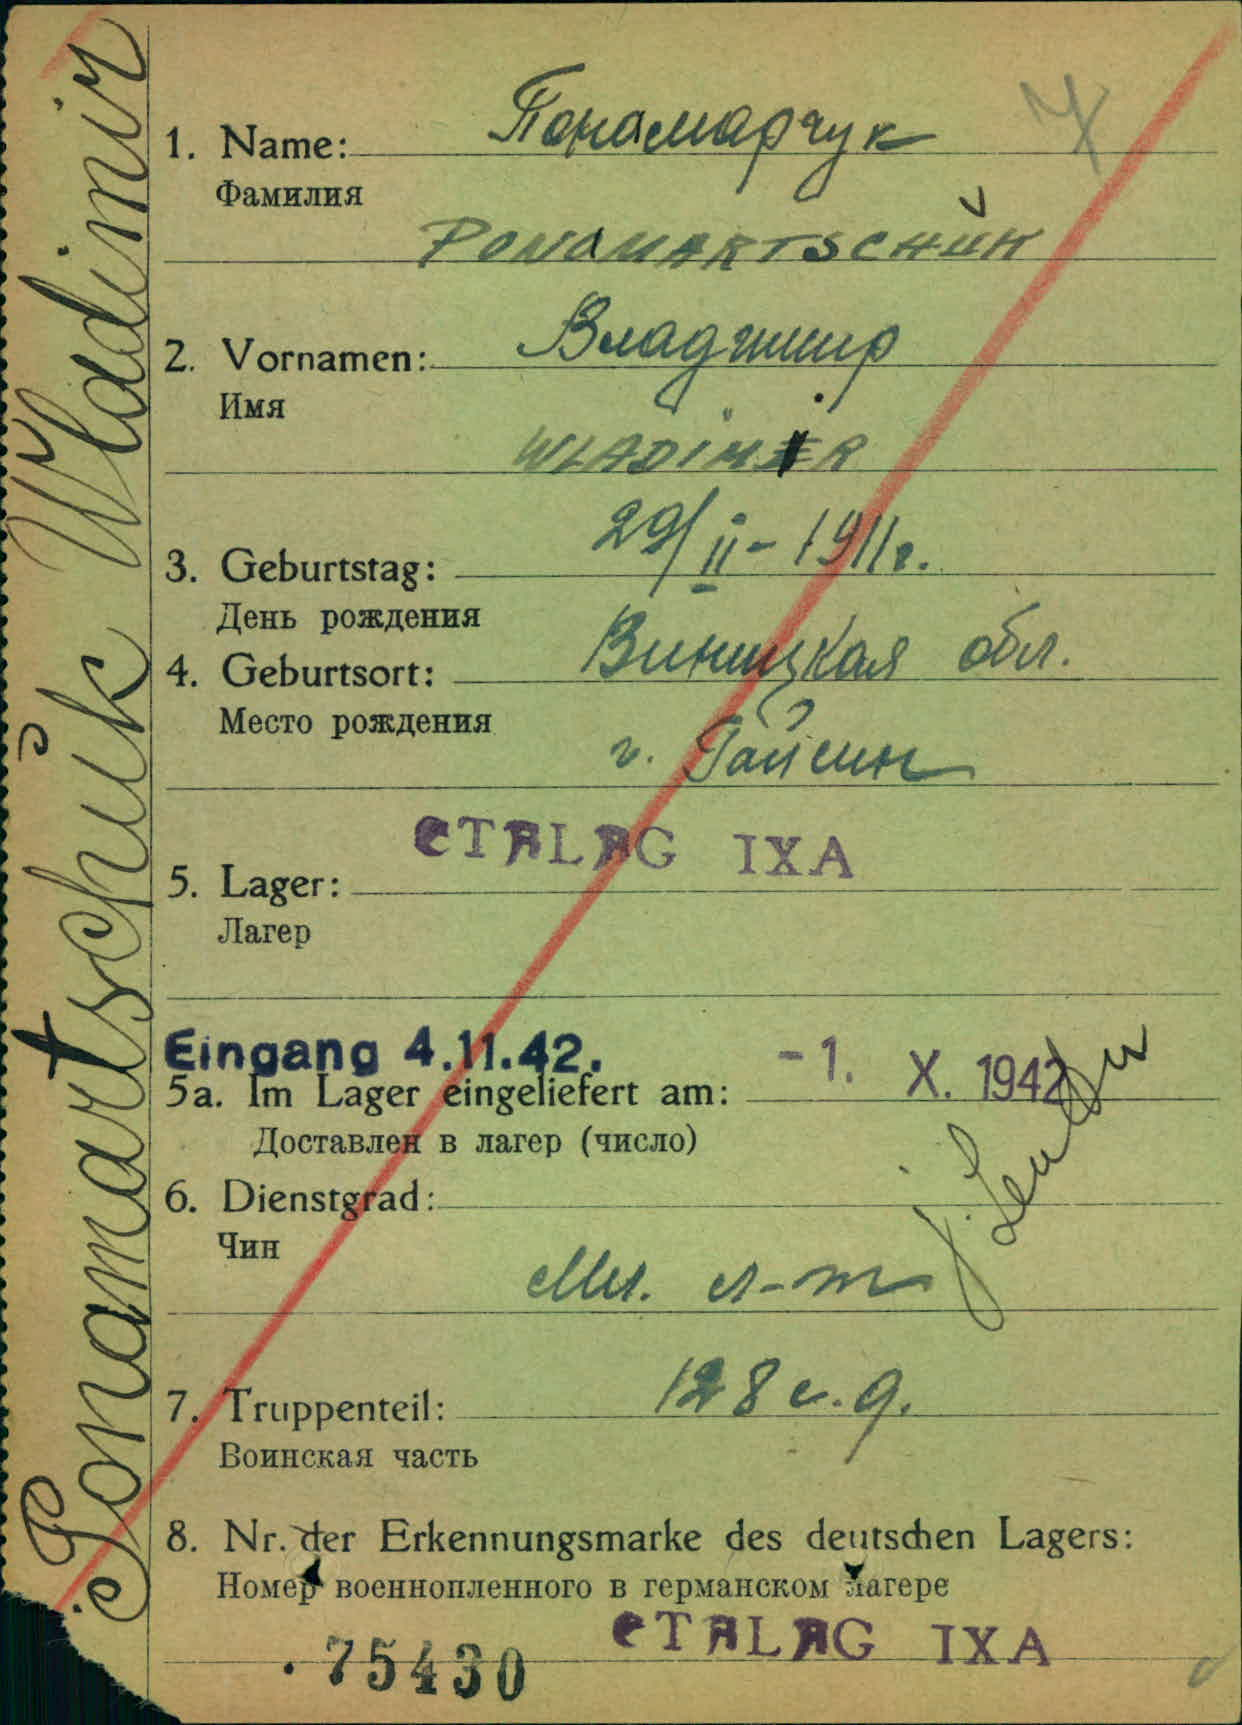 Ponamartschuk Wladimir
1. Name: Понамарчук
Фамилия
PONAMARTSCHUK
2. Vornamen: Владимир
Имя
WLADIMIR
3. Geburtstag: 29/II-1911г.
День рождения
4. Geburtsort: Виницкая обл.
Место рождения
г. Гайсин
5. Lager: СТALAG IXA
Лагер
Eingang 4.11.42.
5a. Im Lager eingeliefert am: -1. X. 1942
Доставлен в лагер (число)
6. Dienstgrad:
Чин
Мл. л-т
7. Truppenteil: 128 с.д.
Воинская часть
8. Nr. der Erkennungsmarke des deutschen Lagers:
Номер военнопленного в германском лагере
СТALAG IXA
75430